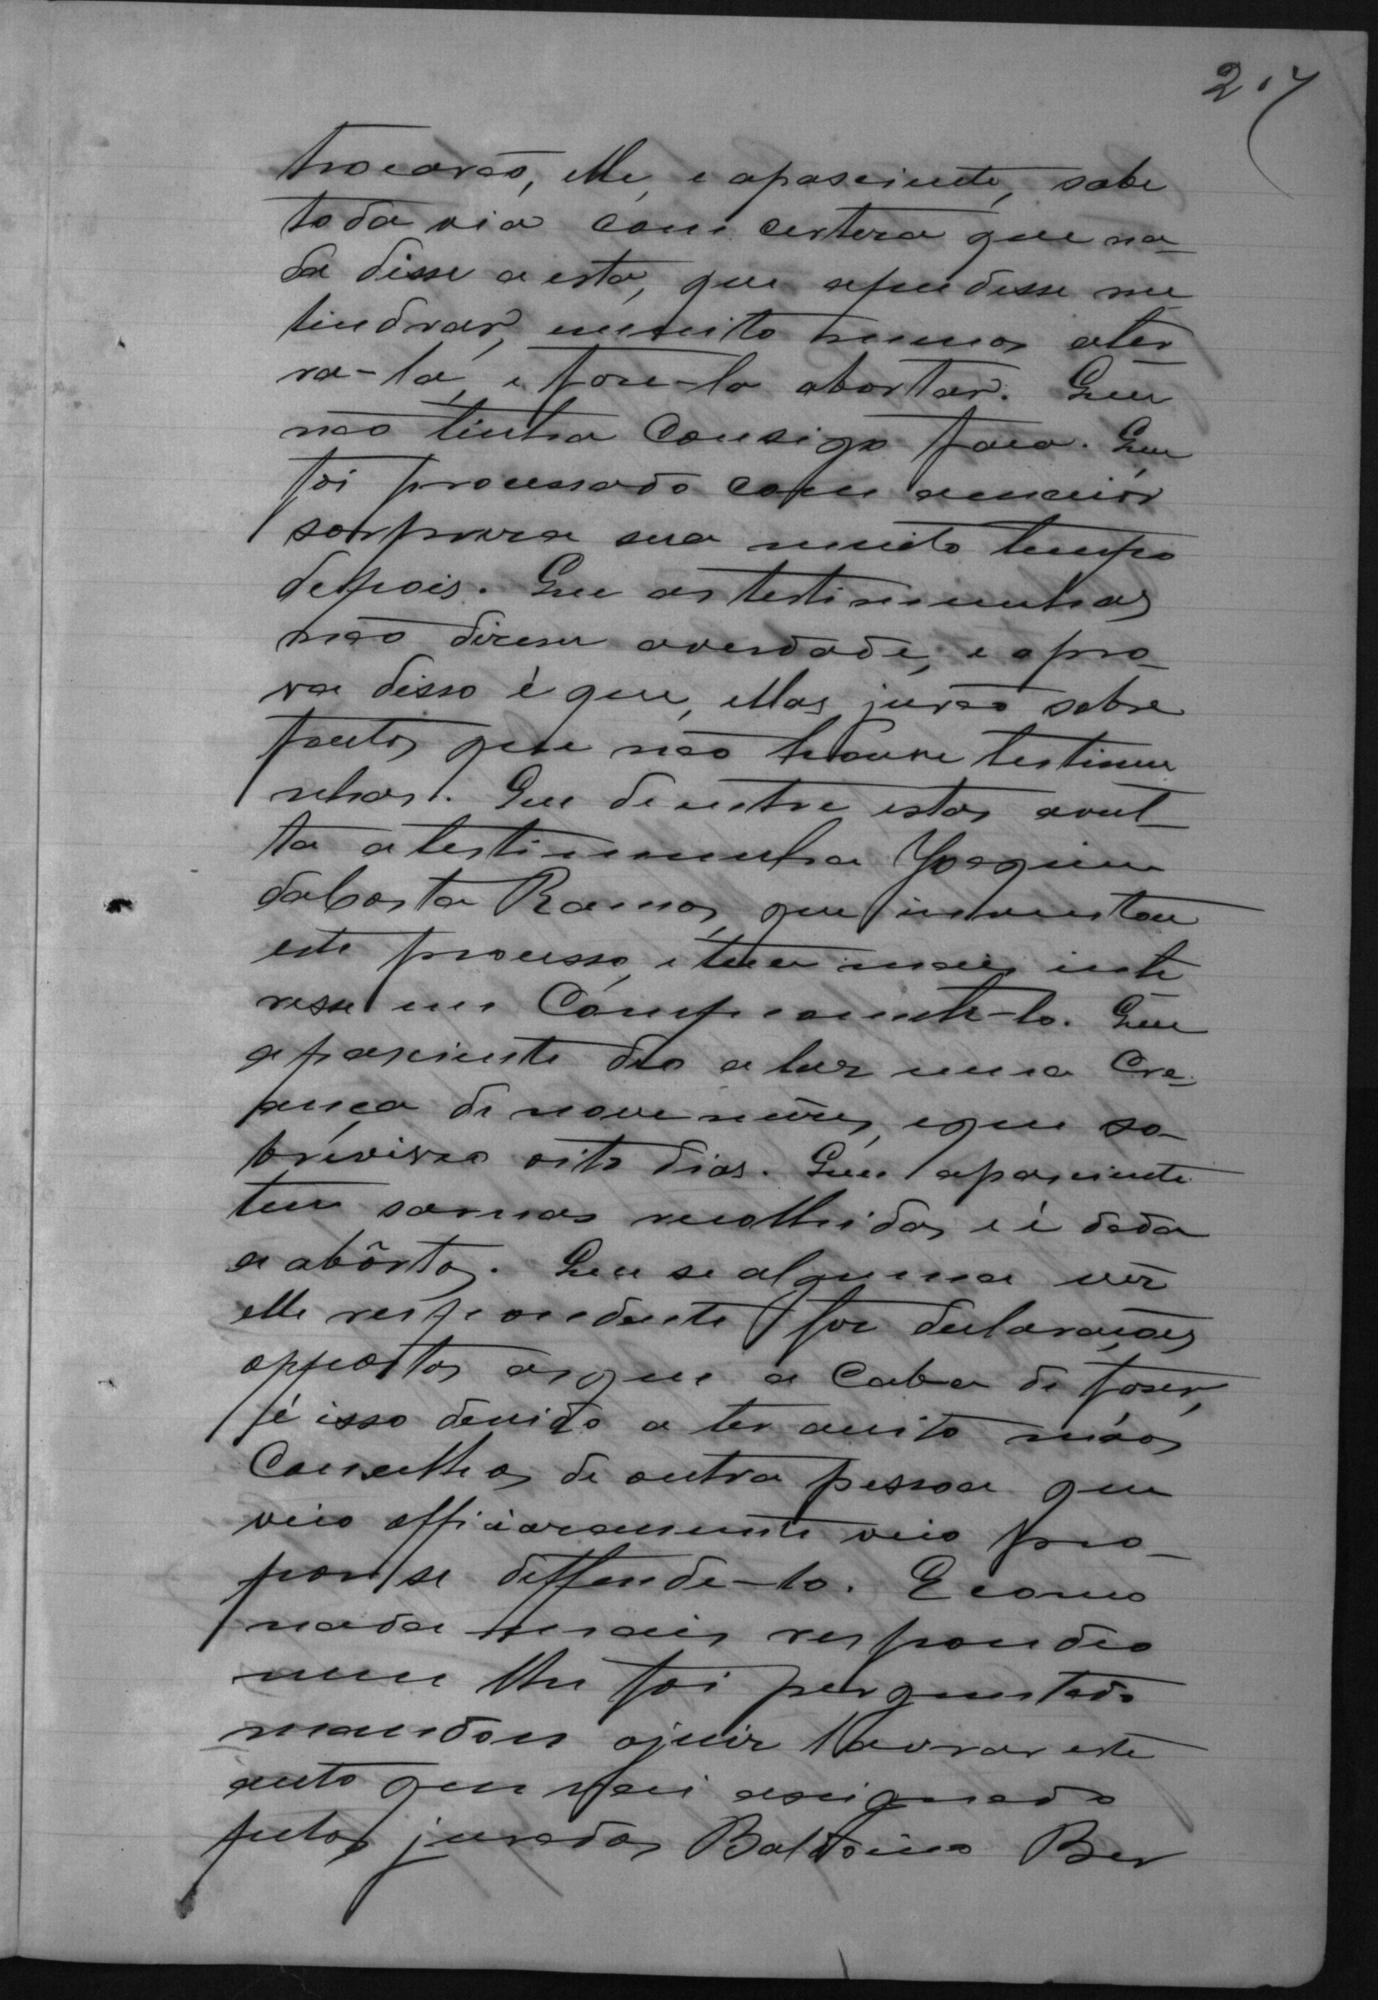 27
trocarão, elle, e apasciente, sabe
toda via com certeza que na-
da disse a esta, que apudesse me
lindrar, muito menos ater
ra-la, e faze-la abortar. Que
não tinha Comsigo faca. Que
foi processado com amaiór
sorpreza sua muito tempo
depois. Que as testimunhas
não dizem averdade, e apro-
va disso é que, ellas jurão sobre
factos que não houve testimu
nhas. Que dentre estas avul-
ta a testimunha Joaquim
daCosta Ramos, que inventou
este processo, e tem mais inte
resse em Compromette-lo. Que
apasciente deo a luz uma Cre-
ança de nove mêzes, eque so-
breviveo oito dias. Que apasciente
tem sarnas recolhidas, e é dada
a abôrtos. Que se alguma vêz
elle respondente fez declarações
oppostas asque a Caba de fazer,
é isso devido a ter aceito máos
Concelhos de outra pessoa que
veio officiozamente veio pro-
por se deffende-lo. E como
nada mais respondeo
nem lhe foi perguntado
mandou ojuiz lavrar este
auto que vai assignado
pelos jurados Baldoino Ber